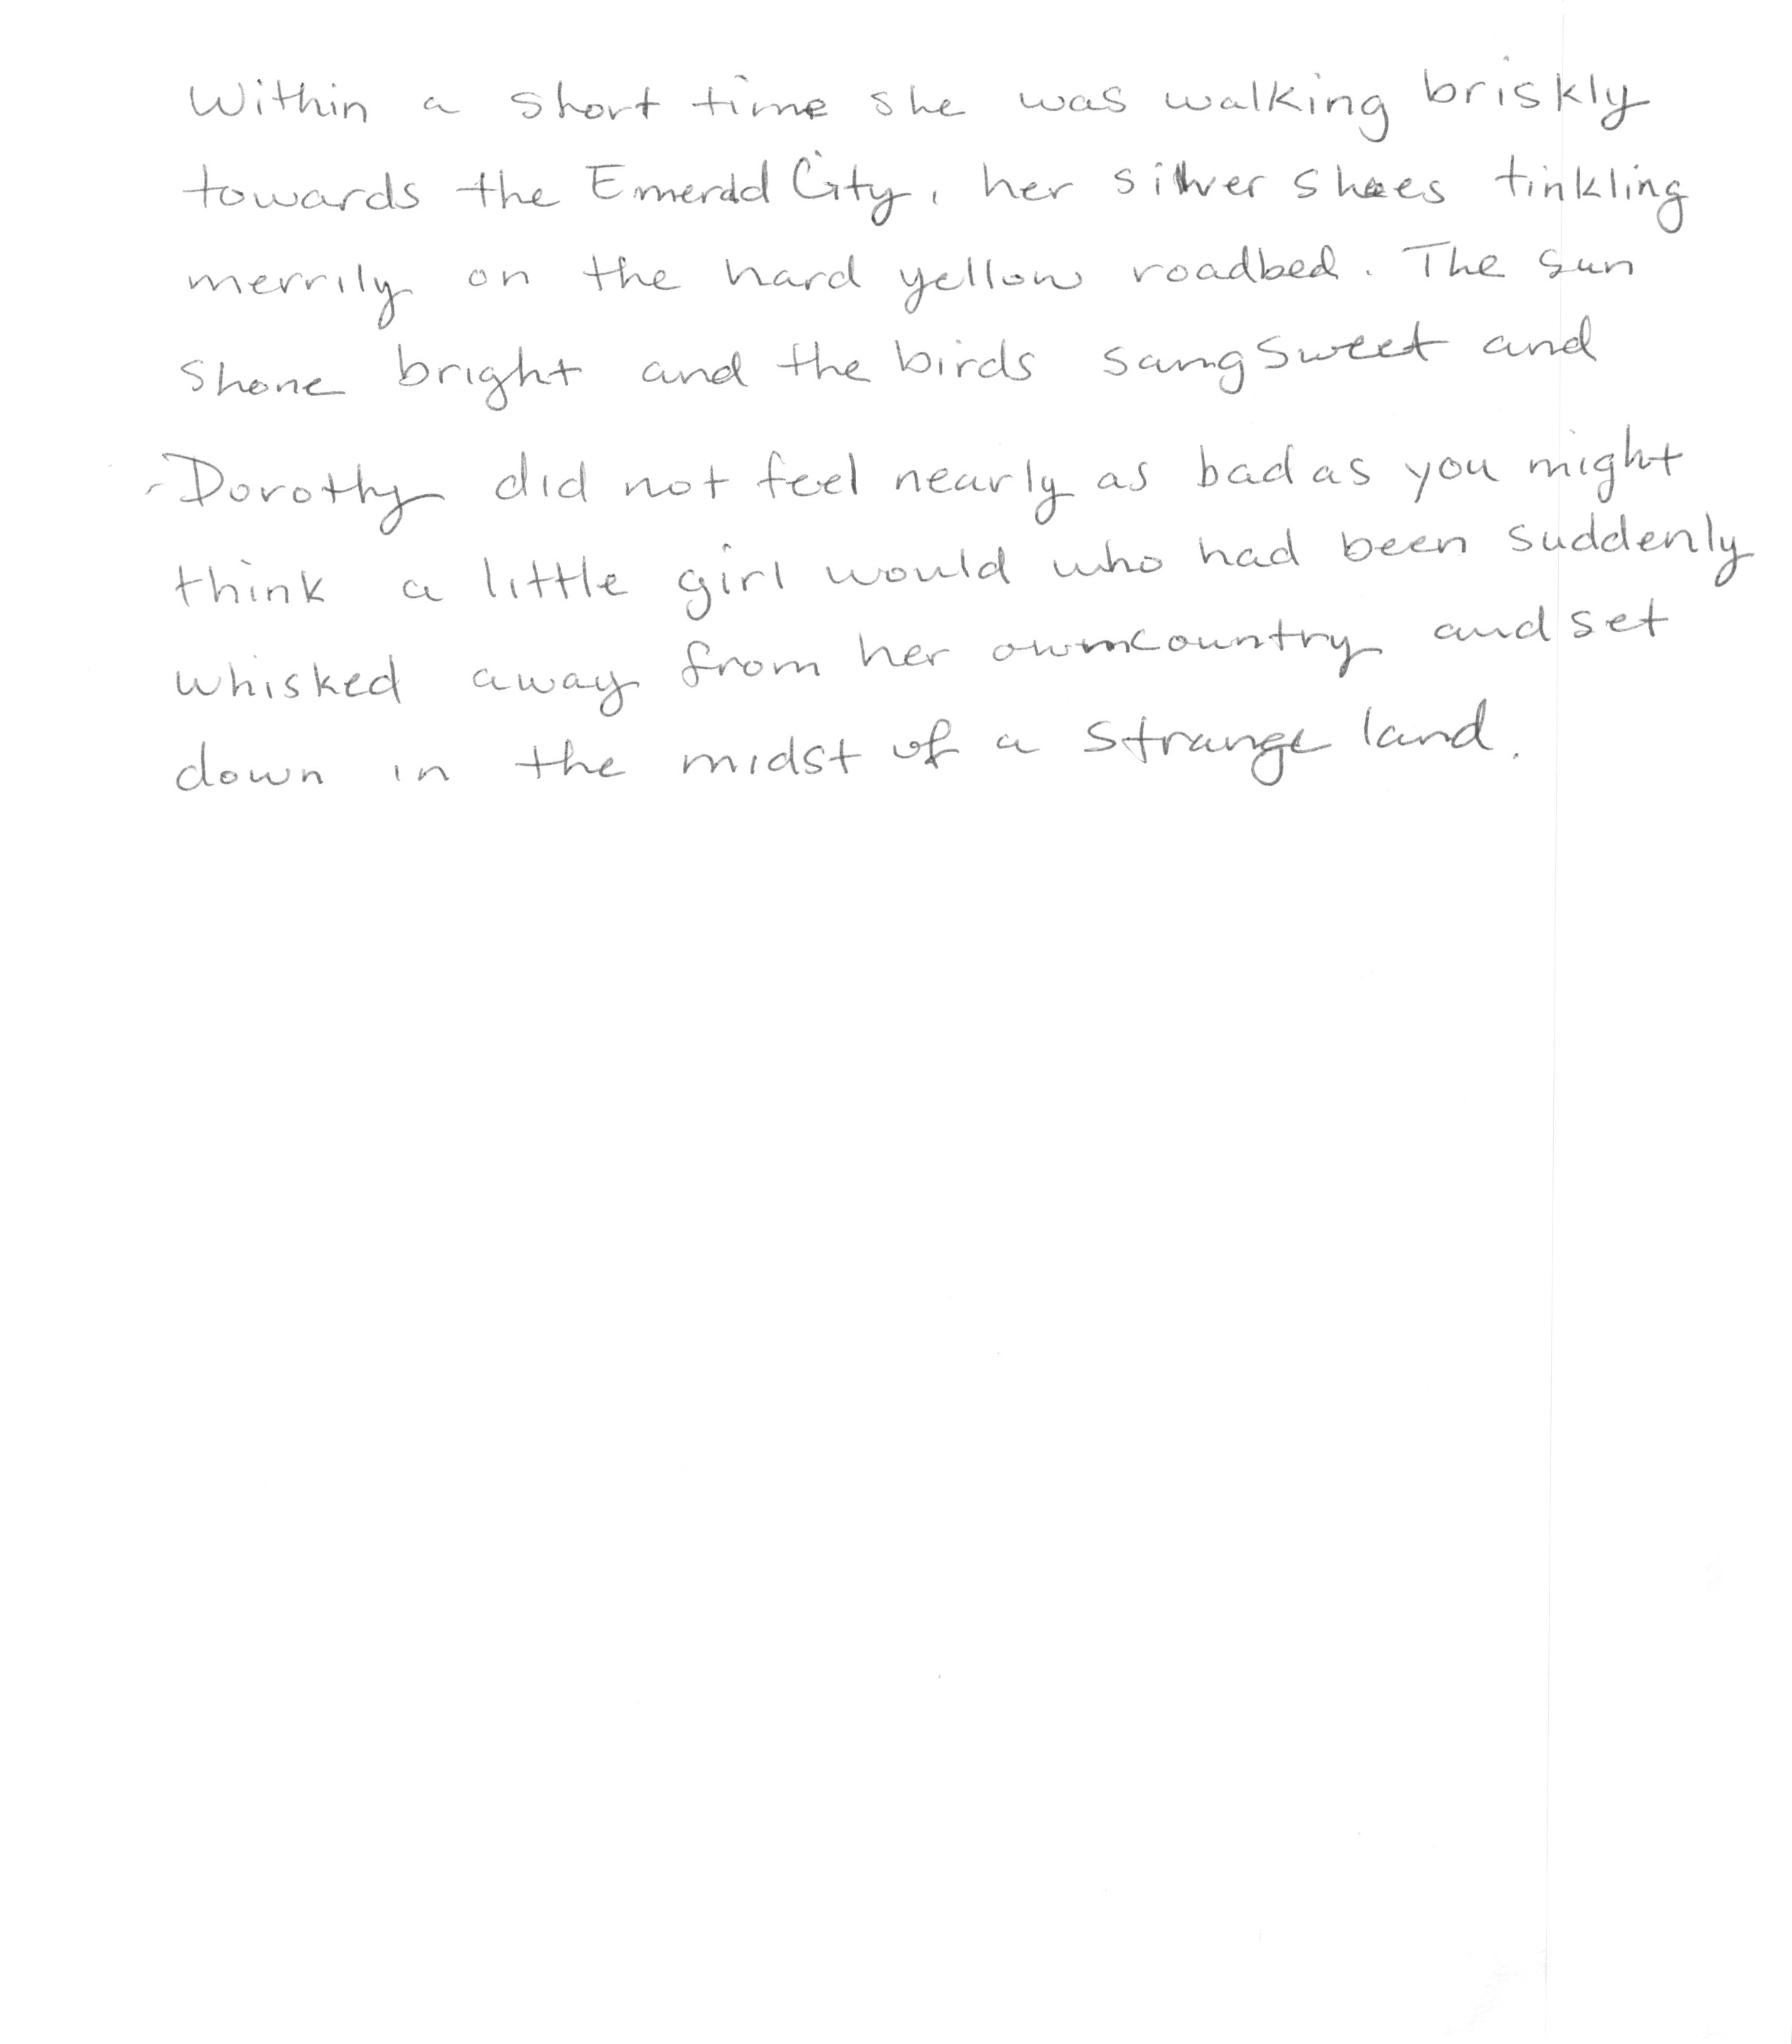 Within a short time she was walking briskly
towards the Emerald City, her silver shoes tinkling
merrily on the hard yellow roadbed. The sun
shone bright and the birds sang sweet and
Dorothy did not feel nearly as bad as you might
think a little girl would who had been suddenly
whisked away from her own country and set
down in the midst of a strange land.